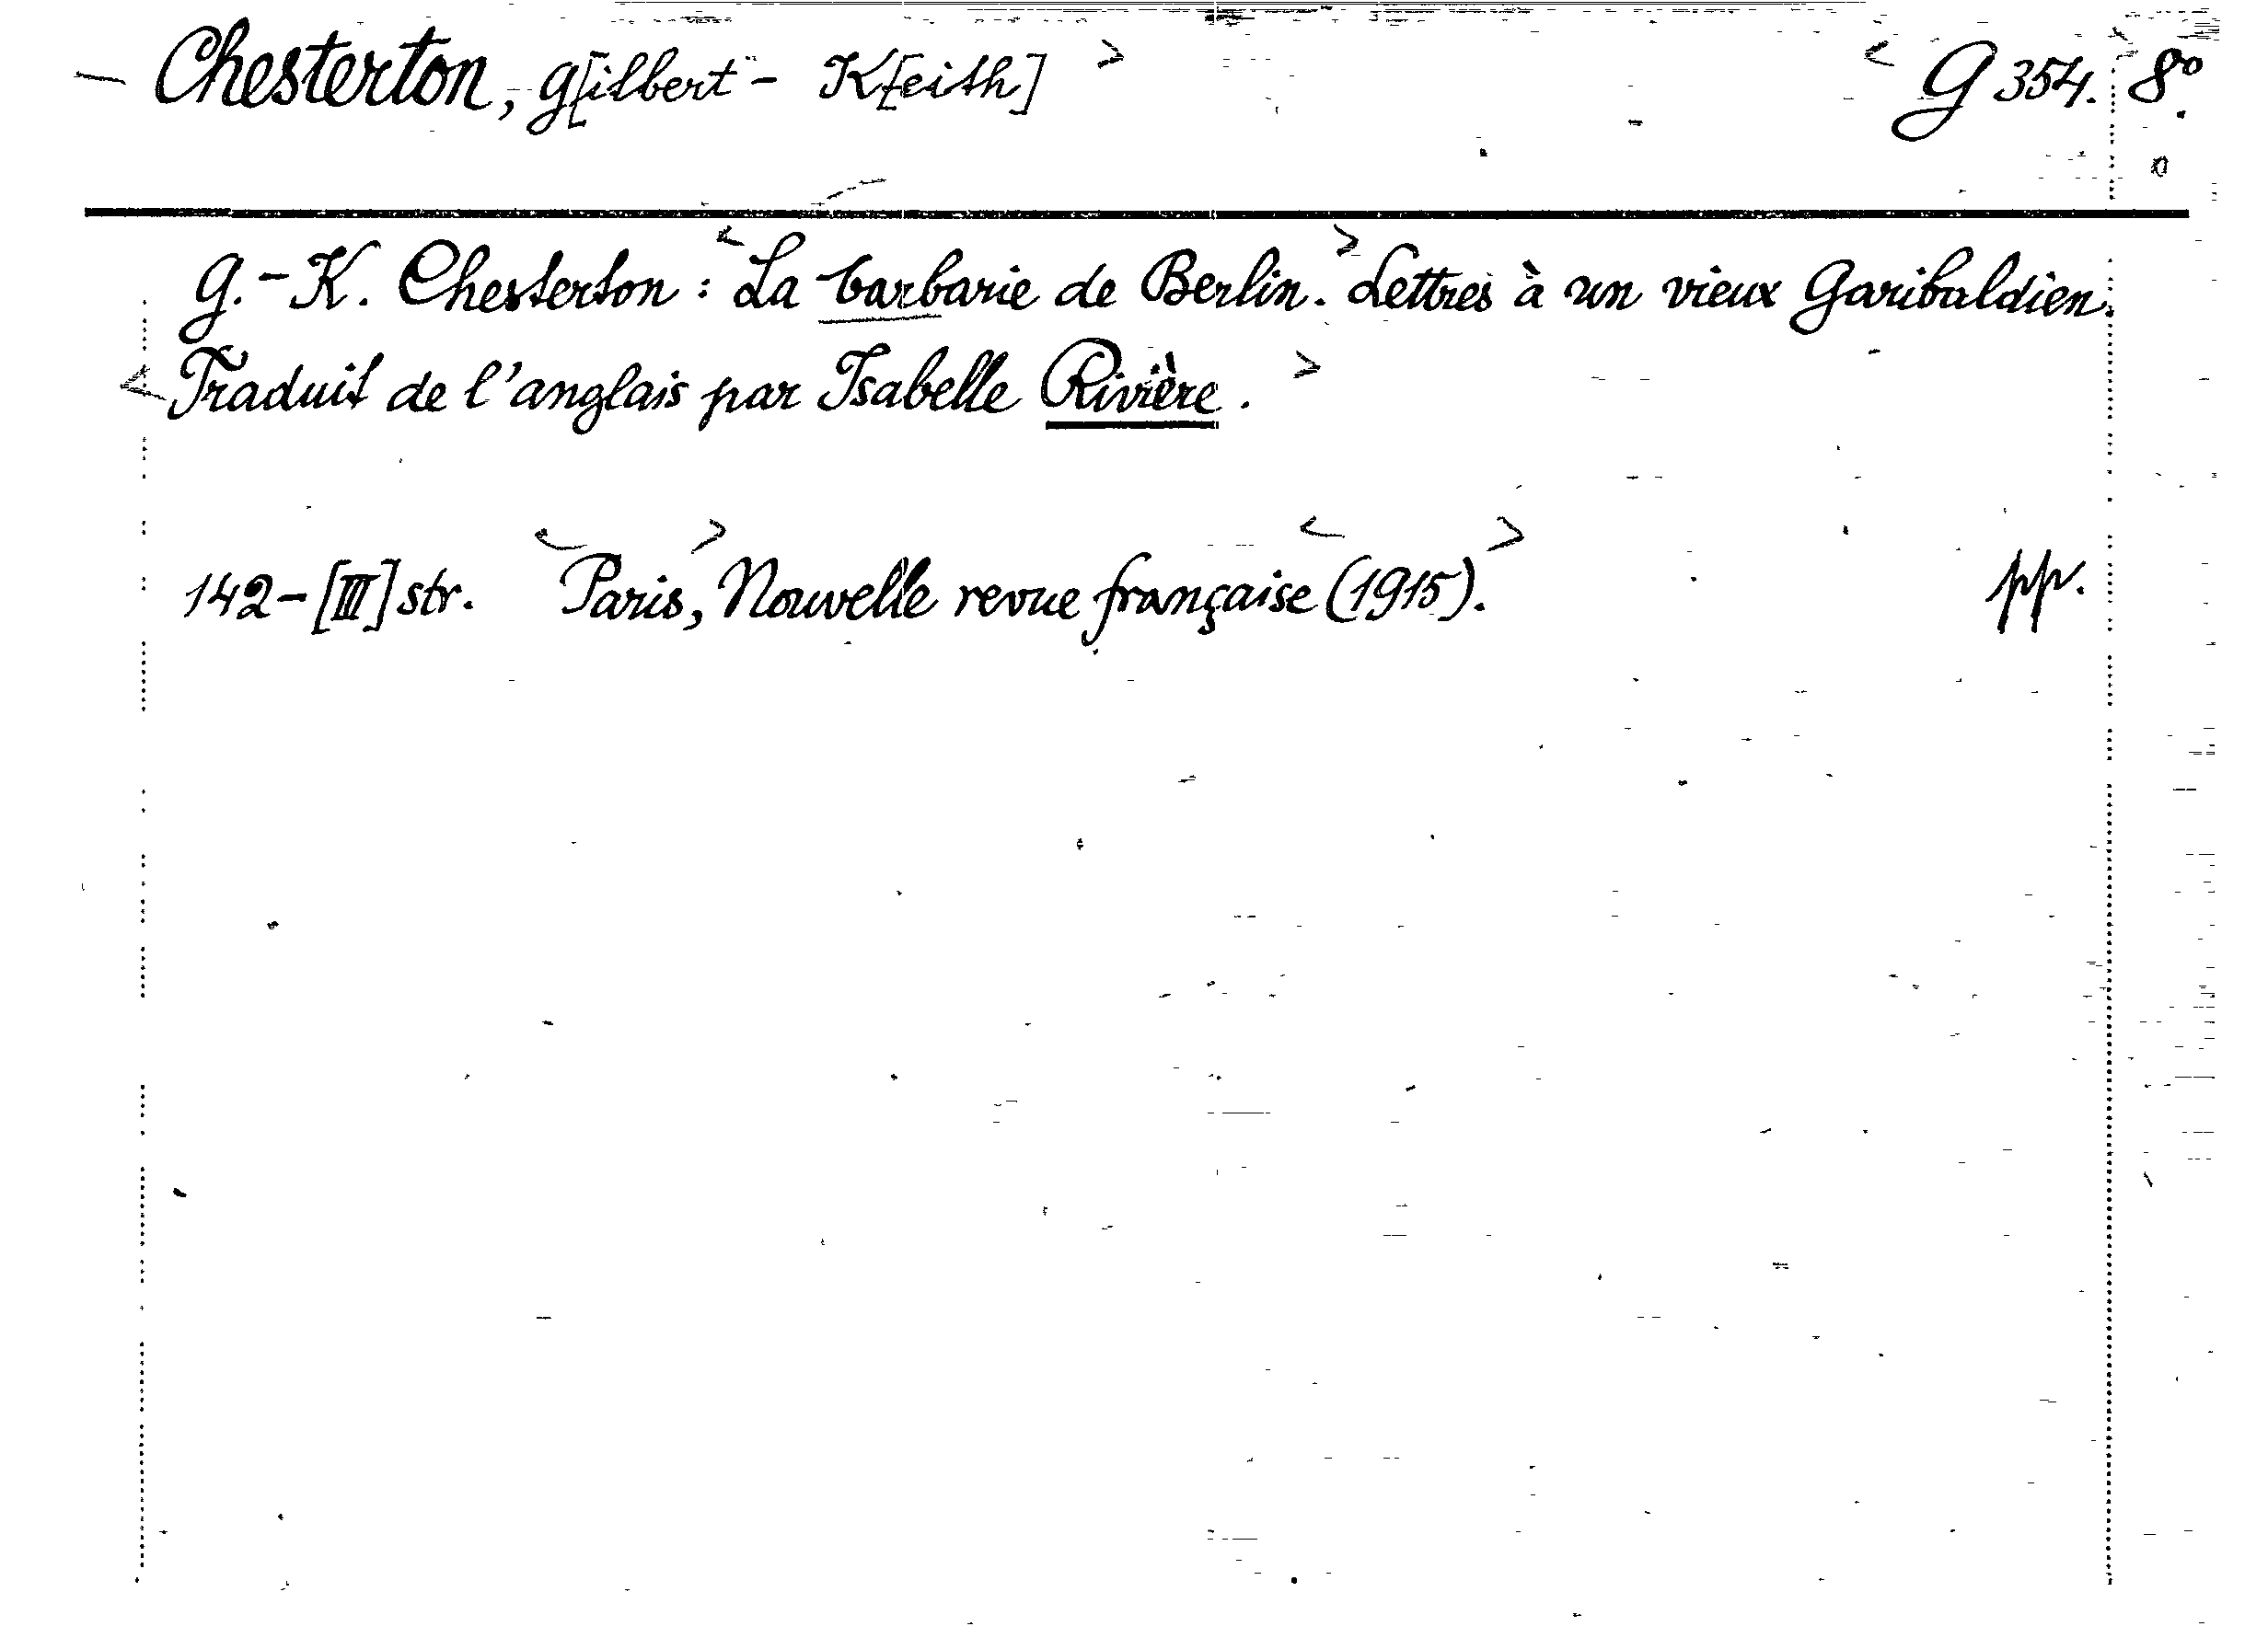 Chesterton, G[ilbert - K[eith] G 354. 8º
G.-K. Chesterton: La barbarie de Berlin. Lettres à un vieux Garibaldien.
Traduit de l'anglais par Isabelle Rivière.
142-[III] str. Paris, Nouvelle revue française (1915). pp.